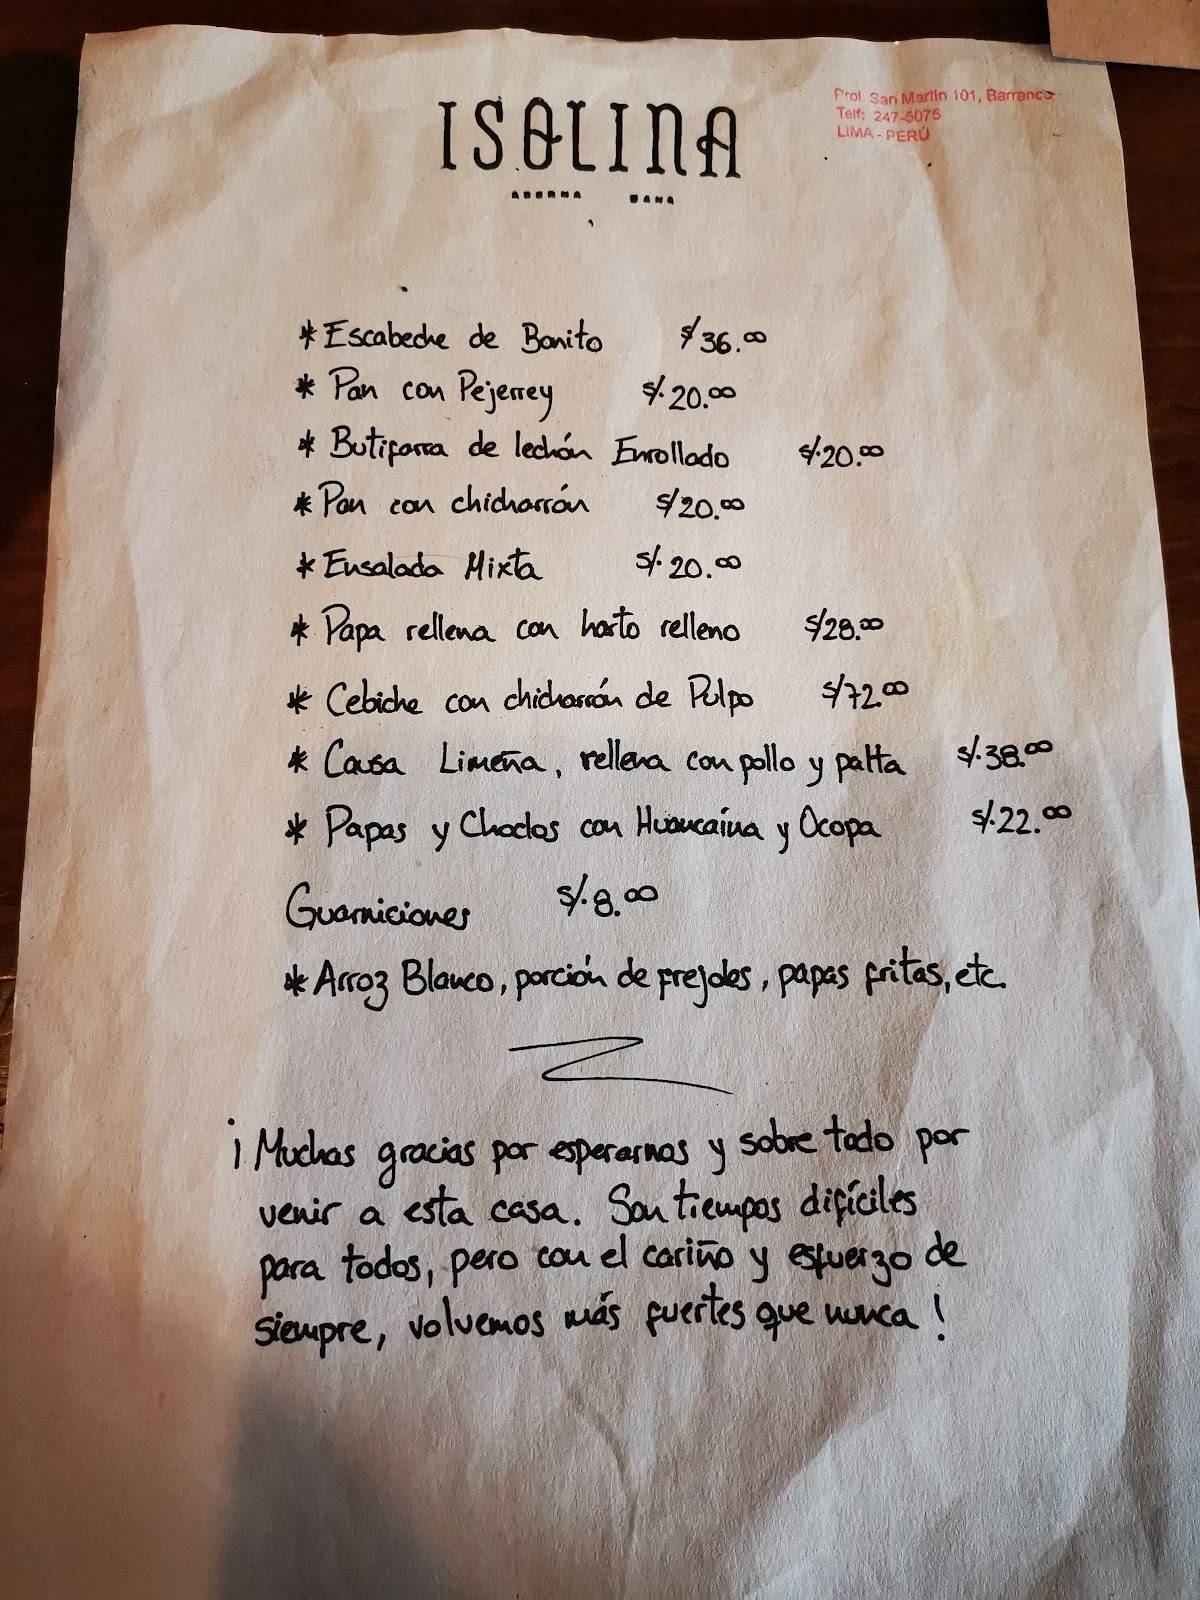 ISOLINA
Prol. San Martín 101, Barranco
Telf: 247-5075
LIMA - PERÚ
* Escabeche de Bonito S/36.00
* Pan con Pejerrey S/.20.00
* Butifarra de lechón Enrollado S/.20.00
* Pan con chicharrón S/20.00
* Ensalada Mixta S/.20.00
* Papa rellena con harto relleno S/28.00
* Cebiche con chicharrón de Pulpo S/72.00
* Causa Limeña, rellena con pollo y palta S/.38.00
* Papas y Choclos con Huancaína y Ocopa S/.22.00
Guarniciones S/.8.00
* Arroz Blanco, porción de frejoles, papas fritas, etc.
¡Muchas gracias por esperarnos y sobre todo por
venir a esta casa. Son tiempos difíciles
para todos, pero con el cariño y esfuerzo de
siempre, volvemos más fuertes que nunca!